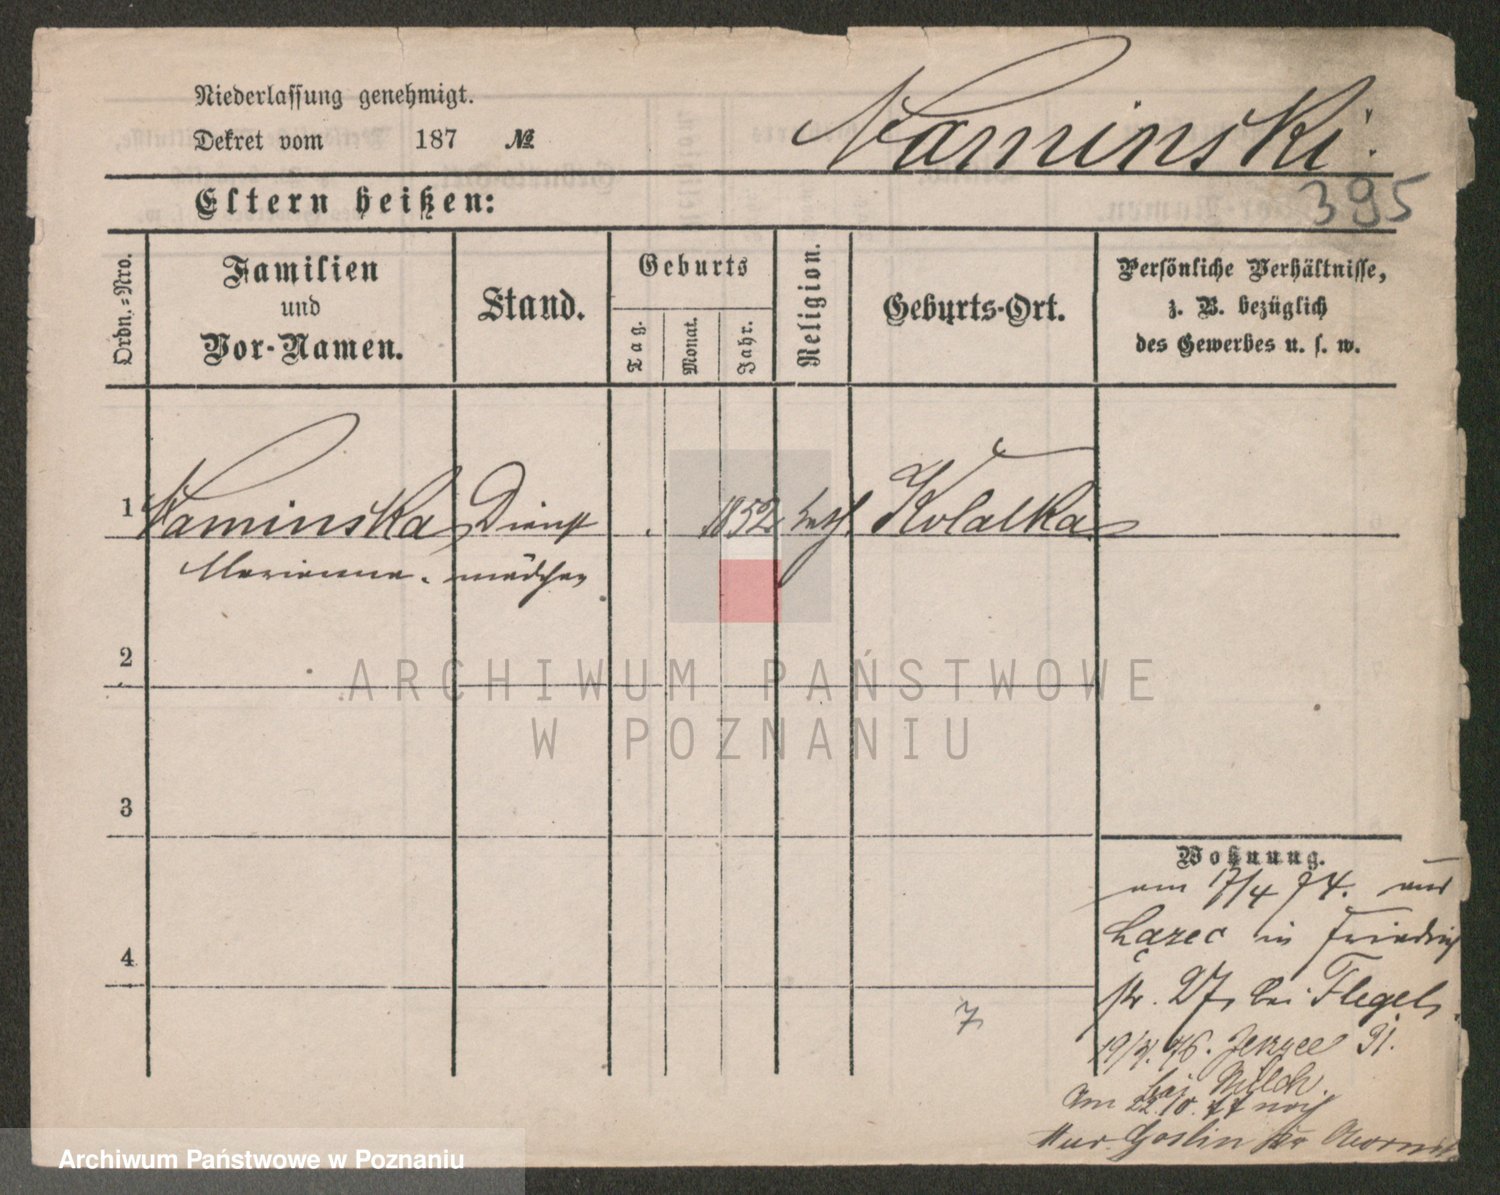 Niederlassung genehmigt.
Dekret vom 187 №
Kaminski.
395
Eltern heißen:
Ordn.-Nro.
Familien
und
Vor-Namen.
Stand.
Geburts
Tag.
Monat.
Jahr.
Religion.
Geburts-Ort.
Persönliche Verhältnisse,
z. B. bezüglich
des Gewerbes u. s. w.
1 Kaminska Dienst 1852 kath. Kolatka
Marianna. mädchen
2
3
4
Wohnung.
am 17/4 74. aus
Lazec in Friedrich
str. 27, bei Flegel,
19/4. 76. Jerzyce 91.
bei Milch.
Am 22.10.77 nach
Mur. Goslin Kr Obornik
7
ARCHIWUM PAŃSTWOWE
W POZNANIU
Archiwum Państwowe w Poznaniu